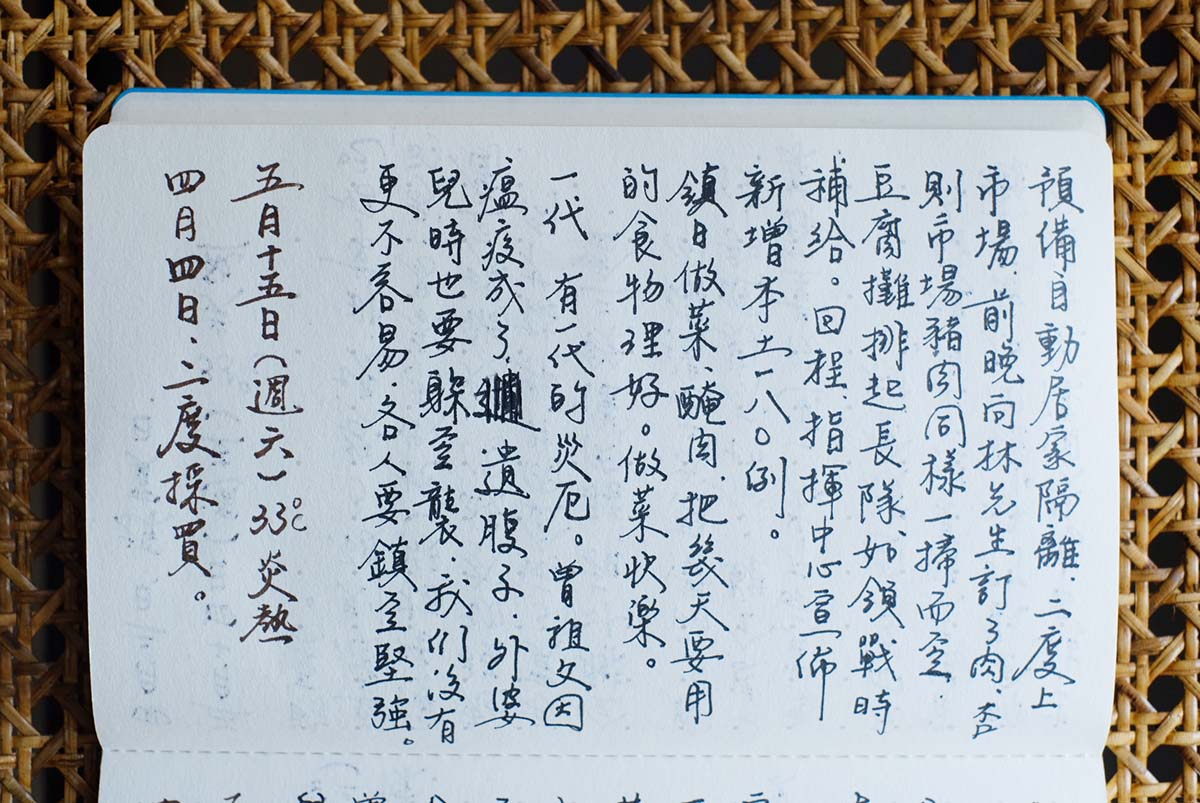 預備自動居家隔離，二度上
市場，前晚向林先生訂了肉，否
則市場豬肉同樣一掃而空，
豆腐攤排起長隊，如領戰時
補給。回程，指揮中心宣佈
新增本土一八〇例。
鎮日做菜、醃肉，把幾天要用
的食物理好。做菜快樂。
一代 有一代的災厄。曾祖父因
瘟疫成了遺腹子，外婆
兒時也要躲空襲，我們沒有
更不容易，各人要鎮定堅強。
五月十五日（週六）33℃ 炎熱
四月四日、二度採買。